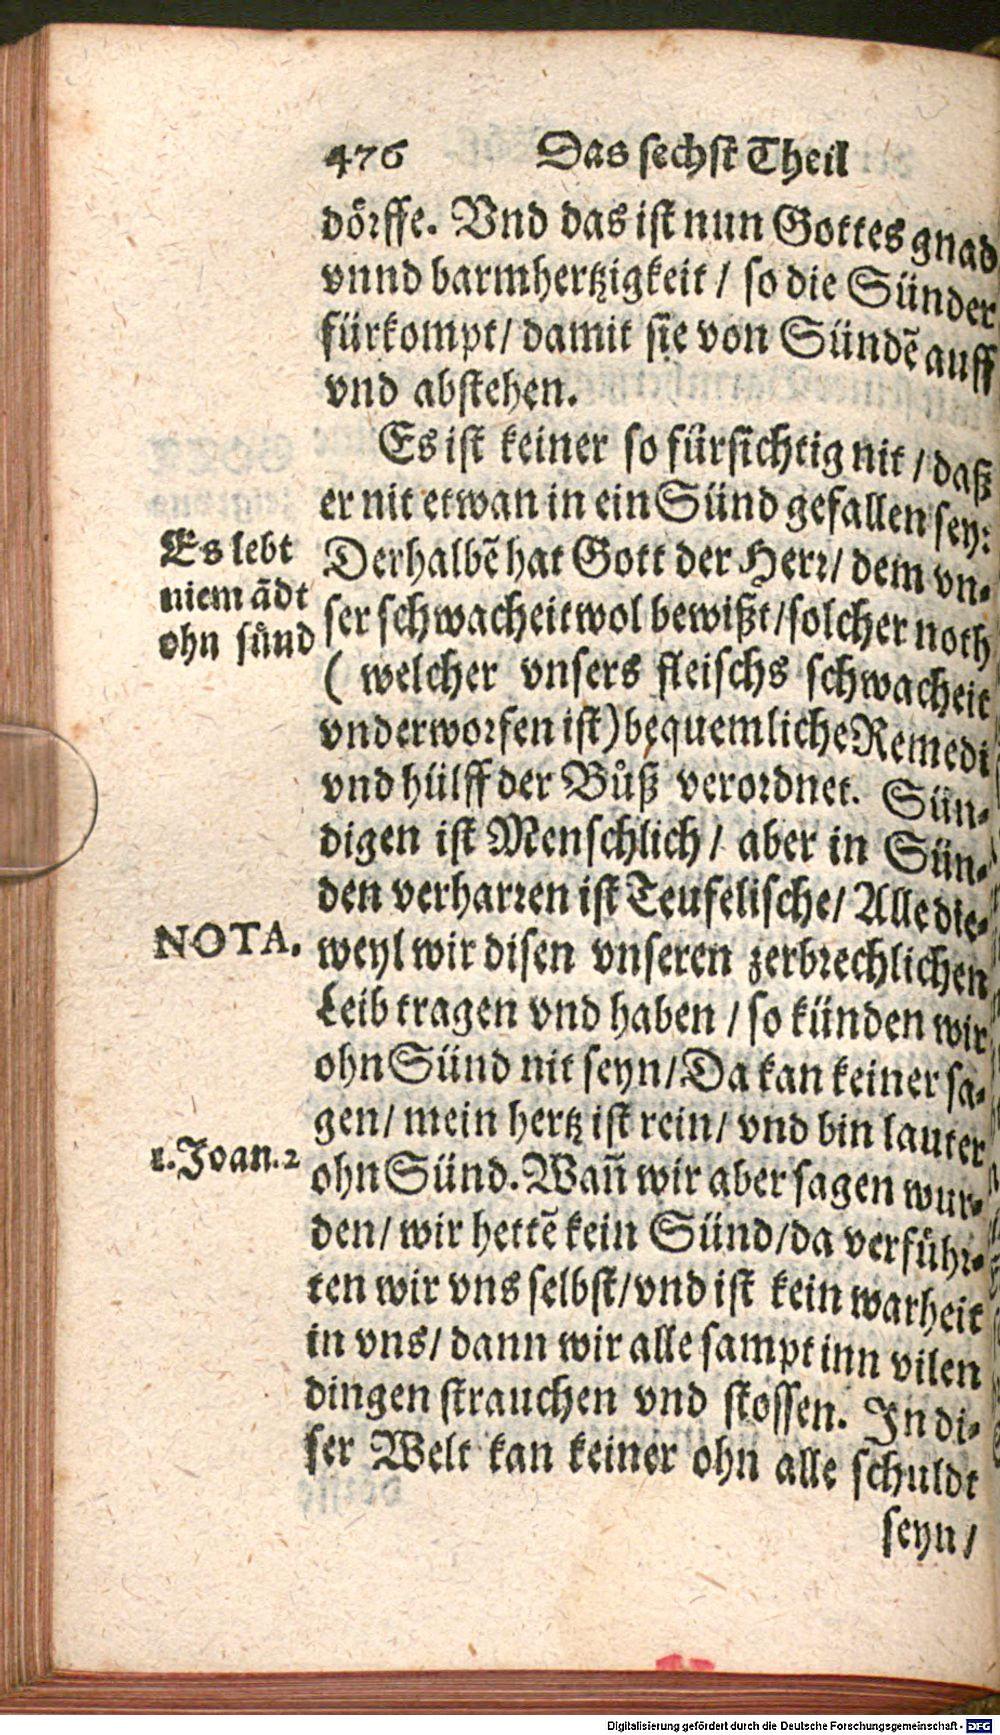 476 Das sechst Theil
dörffe. Vnd das ist nun Gottes gnad
vnnd barmhertzigkeit / so die Sünder
fürkompt / damit sie von Sündẽ auff
vnd abstehen.
Es ist keiner so fürsichtig nit / daß
er nit etwan in ein Sünd gefallen sey:
Es lebt
niemãdt
ohn sünd
Derhalbẽ hat Gott der Herr / dem vn-
ser schwacheit wol bewißt / solcher noth
( welcher vnsers fleischs schwacheit
vnderworfen ist) bequemliche Remedi
vnd hülff der Bůß verordnet. Sün-
digen ist Menschlich / aber in Sün-
den verharren ist Teufelische / Alle die-
NOTA.
weyl wir disen vnseren zerbrechlichen
Leib tragen vnd haben / so künden wir
ohn Sünd nit seyn / Da kan keiner sa-
gen / mein hertz ist rein / vnd bin lauter
1. Joan. 2
ohn Sünd. Wañ wir aber sagen wur-
den / wir hettẽ kein Sünd / da verführ-
ten wir vns selbst / vnd ist kein warheit
in vns / dann wir alle sampt inn vilen
dingen strauchen vnd stossen. In di-
ser Welt kan keiner ohn alle schuldt
seyn /
Digitalisierung gefördert durch die Deutsche Forschungsgemeinschaft - DFG